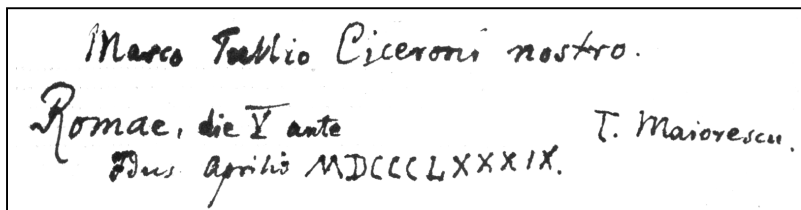 Marco Tullio Ciceroni nostro.
Romae, die V ante
Idus Aprilis MDCCCLXXXIX.
T. Maiorescu.